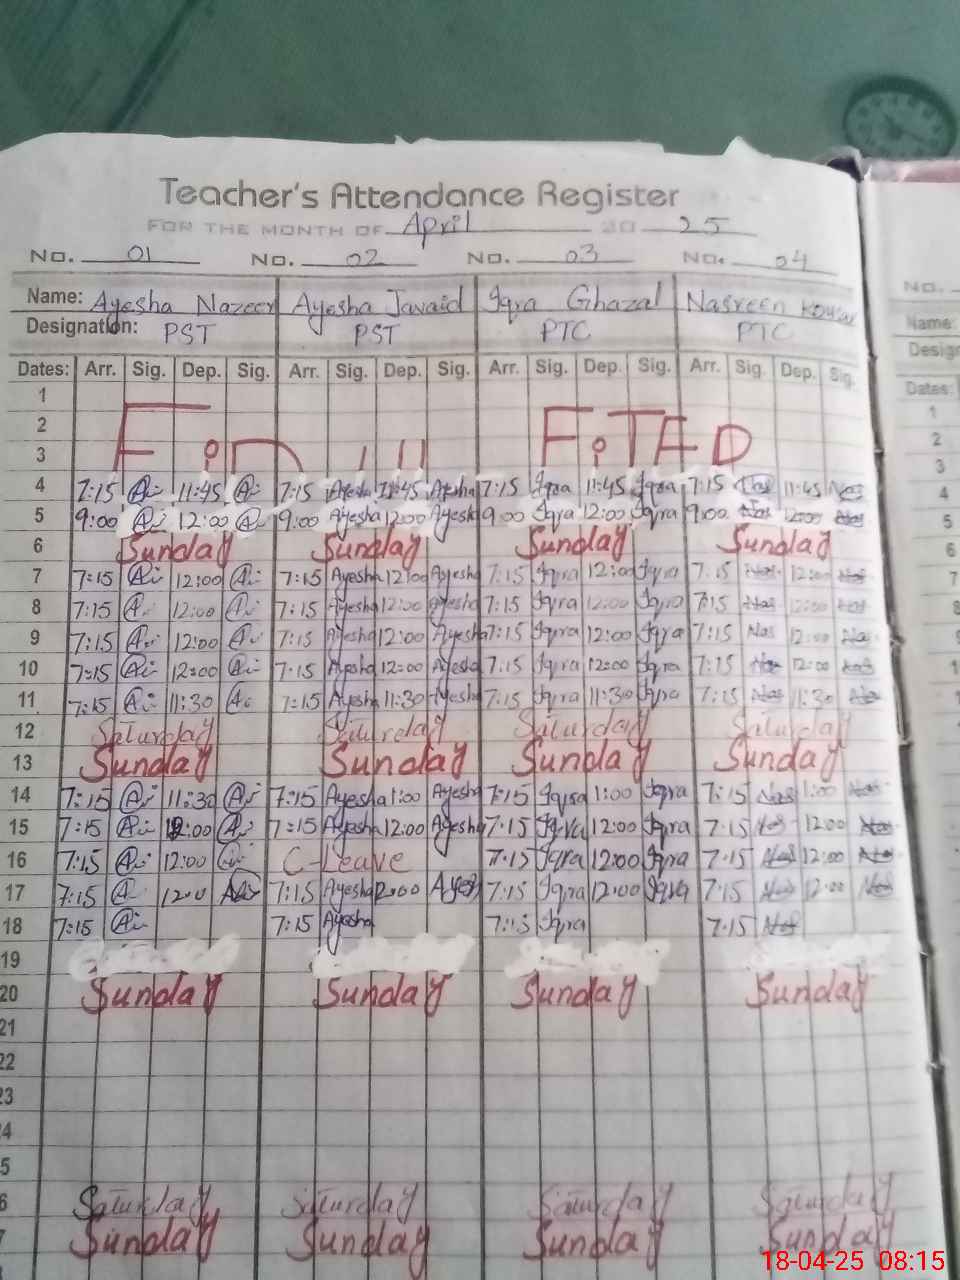 Teacher's Attendance Register
FOR THE MONTH OF April 20 25
No. 01 No. 02 No. 03 No. 04 No.
Name: Ayesha Nazeer Ayesha Javaid Iqra Ghazal Nasreen Name:
Designation: PST PST PTC PTC
Dates: Arr. Sig. Dep. Sig. Arr. Sig. Dep. Sig. Arr. Sig. Dep. Sig. Arr. Sig. Dep. Sig. Dates:
1 1
2 2
3 3
4 7:15 11:45 7:15 Ayesha 11:45 Ayesha 7:15 Iqra 11:45 Iqra 7:15 Nas 11:45 Nas 4
5 9:00 12:00 9:00 Ayesha 12:00 Ayesha 9:00 Iqra 12:00 Iqra 9:00 Nas 12:00 Nas 5
6 Sunday Sunday Sunday Sunday 6
7 7:15 12:00 7:15 Ayesha 12:00 Ayesha 7:15 Iqra 12:00 Iqra 7:15 Nas 12:00 Nas 7
8 7:15 12:00 7:15 Ayesha 12:00 Ayesha 7:15 Iqra 12:00 Iqra 7:15 Nas 12:00 Nas 8
9 7:15 12:00 7:15 Ayesha 12:00 Ayesha 7:15 Iqra 12:00 Iqra 7:15 Nas 12:00 Nas 9
10 7:15 12:00 7:15 Ayesha 12:00 Ayesha 7:15 Iqra 12:00 Iqra 7:15 Nas 12:00 Nas
11 7:15 11:30 7:15 Ayesha 11:30 Ayesha 7:15 Iqra 11:30 Iqra 7:15 Nas 11:30 Nas
12 Saturday Saturday Saturday Saturday
13 Sunday Sunday Sunday Sunday
14 7:15 11:30 7:15 Ayesha 1:00 Ayesha 7:15 Iqra 1:00 Iqra 7:15 Nas 1:00 Nas
15 7:15 12:00 7:15 Ayesha 12:00 Ayesha 7:15 Iqra 12:00 Iqra 7:15 Nas 12:00 Nas
16 7:15 12:00 C-Leave 7:15 Iqra 12:00 Iqra 7:15 Nas 12:00 Nas
17 7:15 7:15 Ayesha 12:00 7:15 Iqra 12:00 Iqra 7:15 Nas 12:00 Nas
18 7:15 7:15 Ayesha 7:15 Iqra 7:15 Nas
19
20 Sunday Sunday Sunday Sunday
21
22
23
Saturday Saturday Saturday Saturday
Sunday Sunday Sunday Sunday
18-04-25 08:15